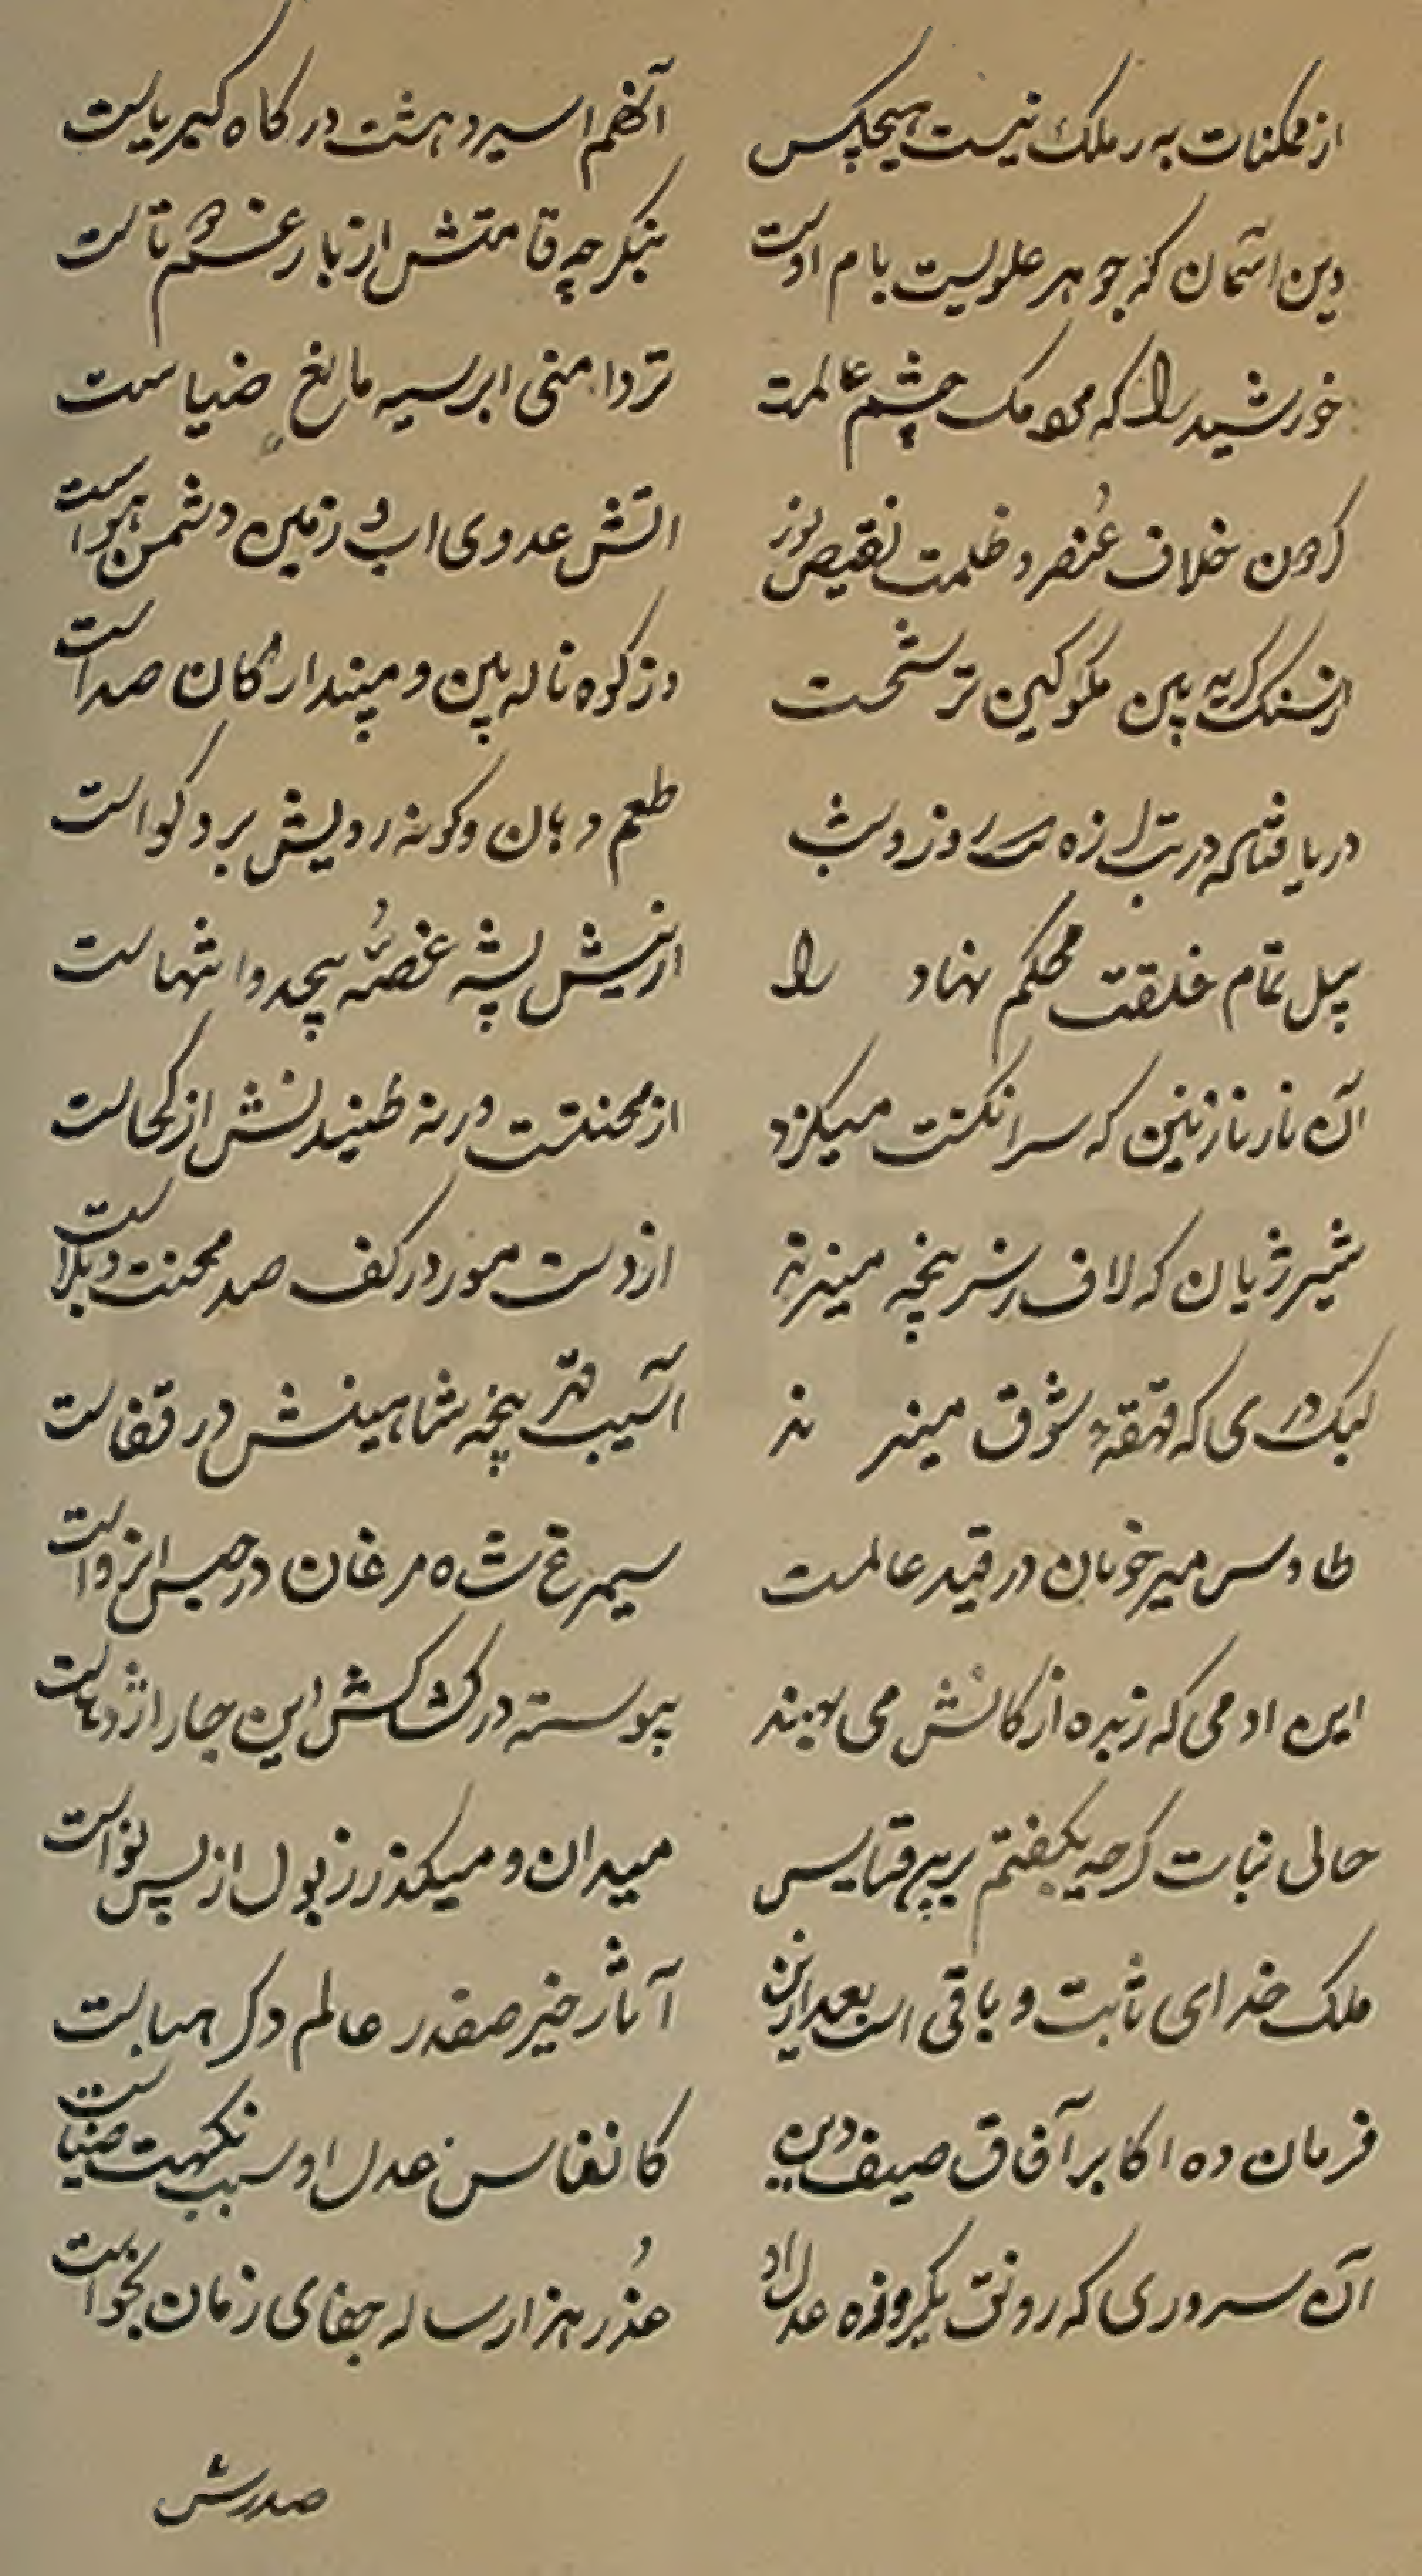 از ممکنات به ز ملک نیست هیچکس
آنهم اسیر دهشت درکاه کبریاست
وین اسمان که جوهر علویست نام اوست
بنکر چه قامتش از بار غم دوتاست
خورشید را که مردمک چشم عالمست
تردامنی ابر سیه مانع ضیاست
کردون خلاف عنصر و ظلمت نقیض نور
اتش عدوی اب و زمین دشمن هواست
از سنک کریه بین مکو کین ترشحست
وز کوه ناله بین و مپندار کان صداست
دریا فتاده در تب لرزه روز و شب
طعم دهان و کونه رویش برو کواست
پیل تمام خلقت محکم نهاد را
از نیش پشه غصهٔ بیحد و انتهاست
آن مار نازنین که سر انکشت میکزد
از محنتست ورنه طنیدنش از کجاست
شیر ژیان که لاف سرپنجه میزند
از دست مور در کف صد محنت و بلاست
کبک دری که قهقههٔ شوق میزند
آسیب قهر پنجه شاهینش در قفاست
طاوس میر خوبان در قید عالمست
سیمرغ شاه مرغان در حبس انزواست
این ادمی که زبده ارکانش می نهند
پیوسته در کشاکش این چار اژدهاست
حالی نبات کرچه بکفتم برین قیاس
میدان و میکذر
ملک خدای ثابت و باقی است بعد ازین
آثار خیر صفدر عالم دکر هباست
فرمان ده اکابر آفاق سیف دین
کانفاس عدل او سبب نکهت صباست
آن سروری که رونق یکروزه عدل او
عذر هزار ساله جفای زمان بخواست
صدرش